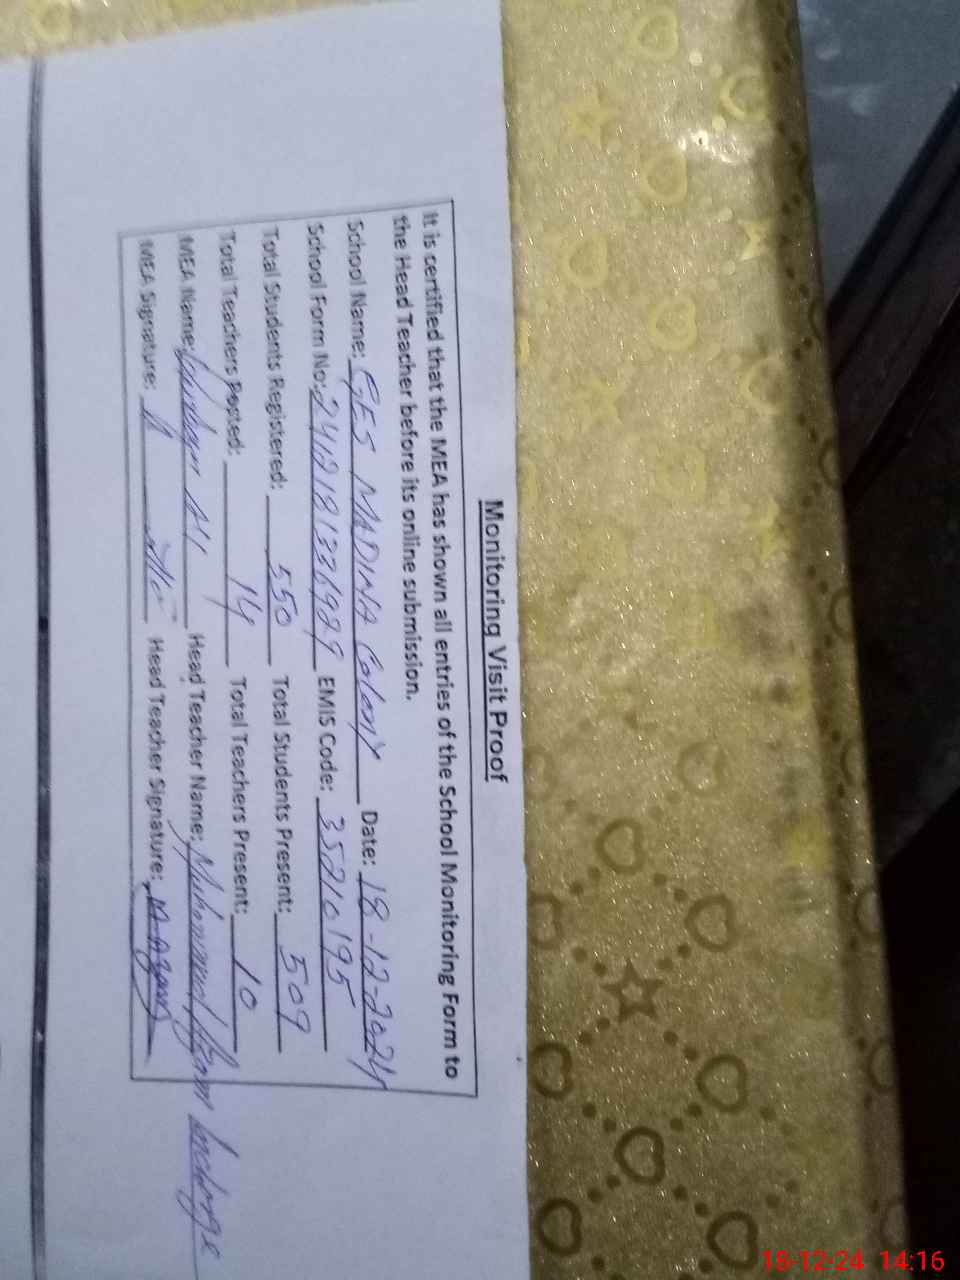 Monitoring Visit Proof
It is certified that the MEA has shown all entries of the School Monitoring Form to
the Head Teacher before its online submission.
School Name: GES MADINA Colony Date: 18-12-2024
School Form No: EMIS Code: 35210195
Total Students Registered: 550 Total Students Present: 509
Total Teachers Posted: 14 Total Teachers Present: 10
MEA Name: Ali Head Teacher Name: Muhammad
MEA Signature: Head Teacher Signature:
18-12-24 14:16